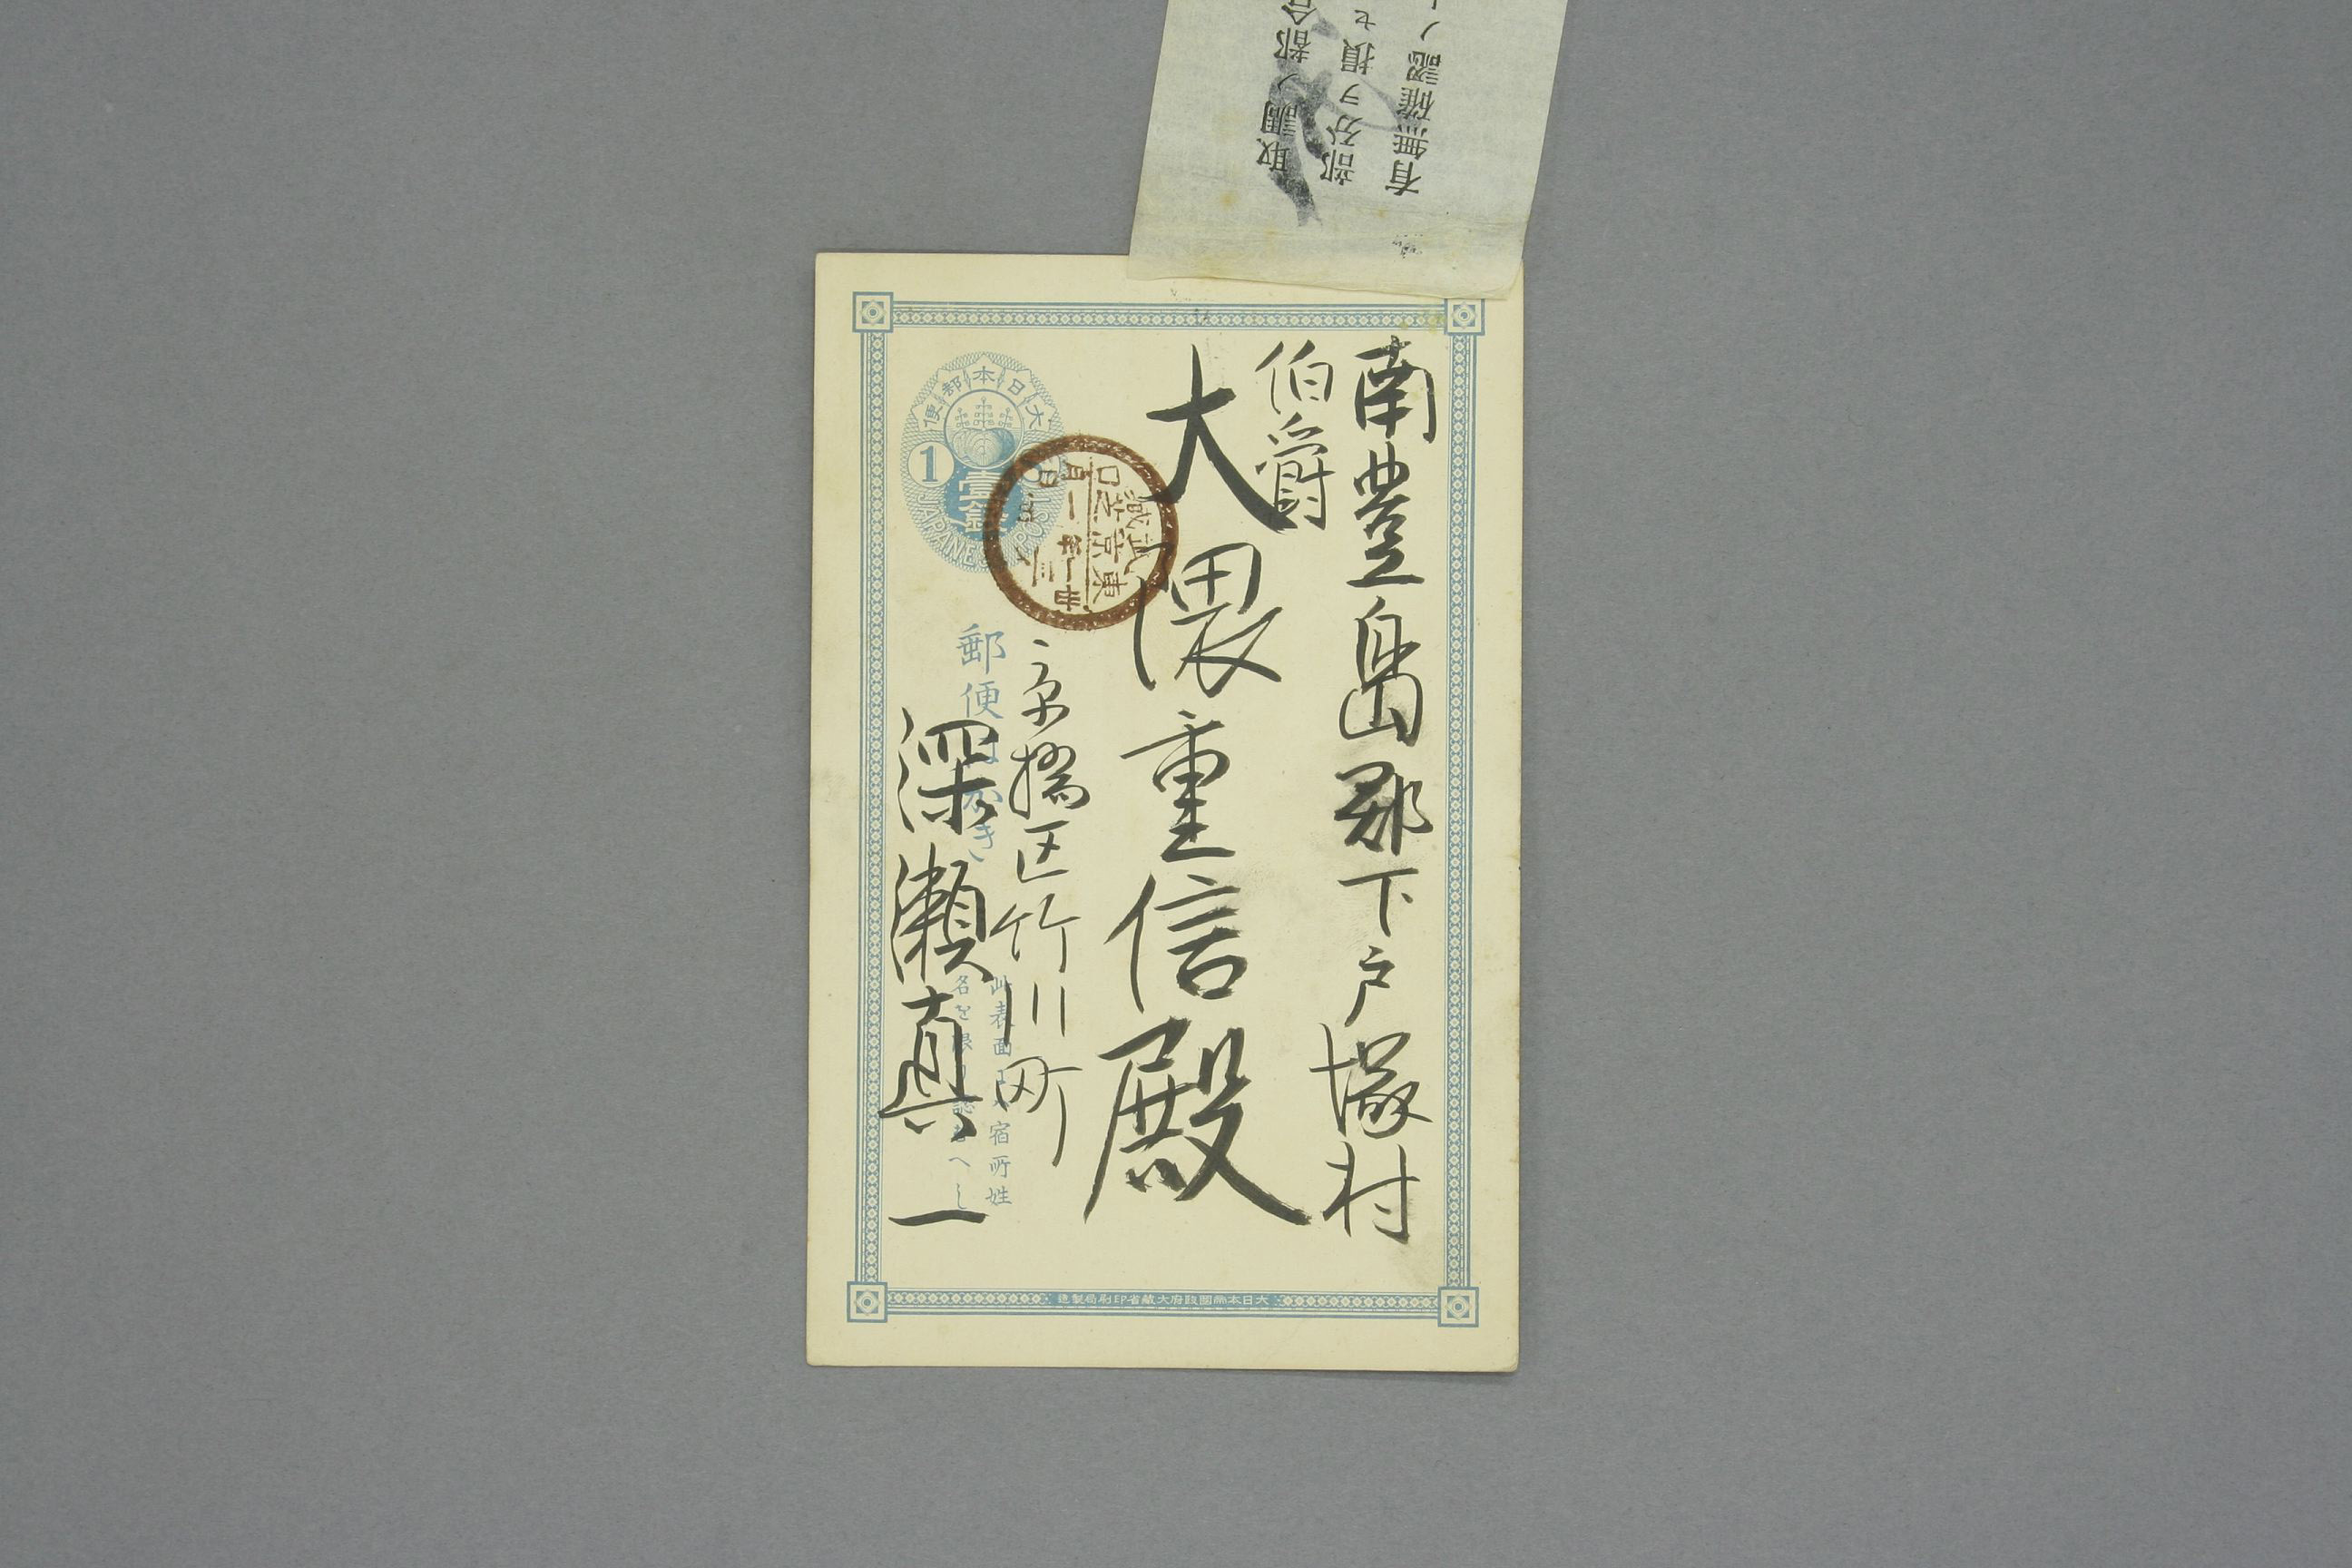 有無確認ノ
部分ヲ損セ
取調ノ都合
南豊島郡下戸塚村
伯爵
大隈重信殿
京橋区竹川町
深瀬真一
大日本郵便
1
壹銭
JAPANESE POST
武蔵東京芝口
郵便はがき
此表面 宿所姓
名を限 へし
大日本帝國政府大藏省印刷局製造